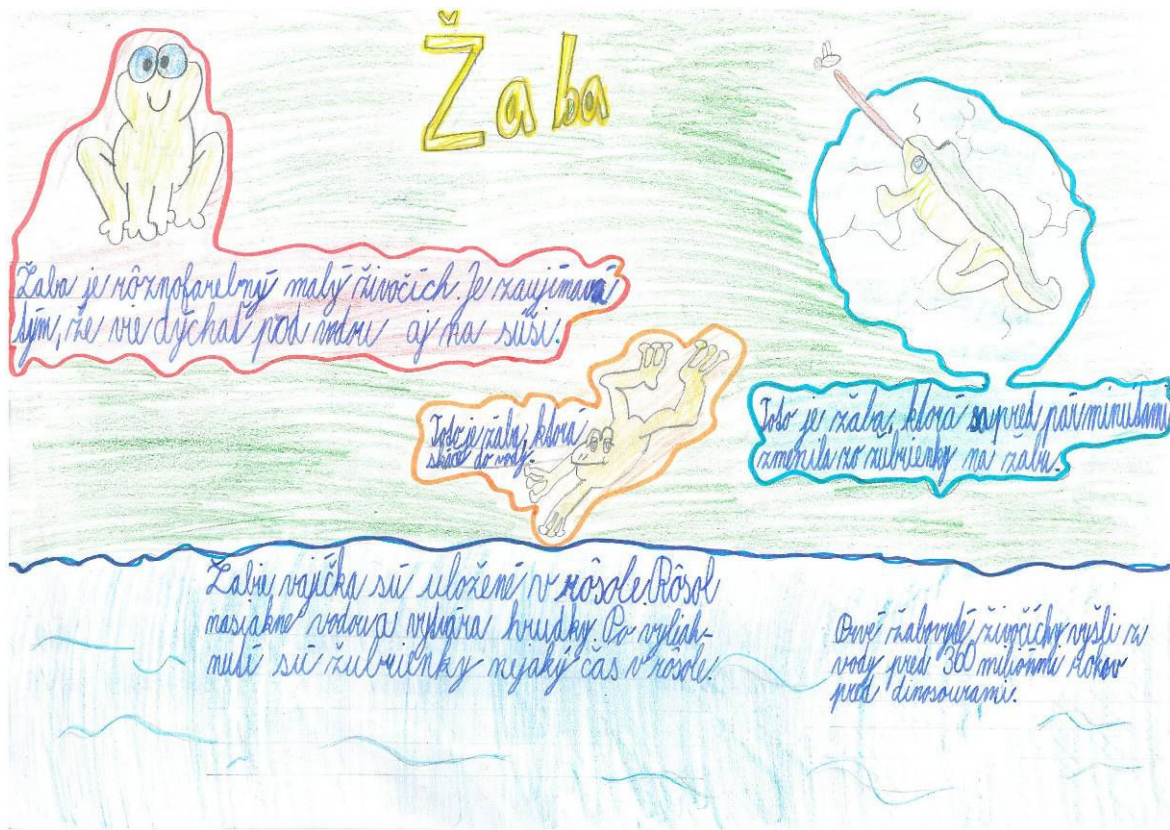 Žaba
Žaba je rôznofarebný malý živočích. Je zaujímavá
tým, že vie dýchať pod vodou aj na súši.
Toto je žaba, ktorá
skáče do vody.
Toto je žaba, ktorá sa pred pár minutami
zmenila zo žubrienky na žabu.
Žabie vajíčka sú uložené v rôsole. Rôsol
nasiakne vodou a vytvára hrudky. Po vyliah-
nutí sú žubrienky nejaký čas v rôsole.
Prvé žabovyté živočíchy vyšli z
vody pred 360 miliónmi rokov
pred dinosourami.